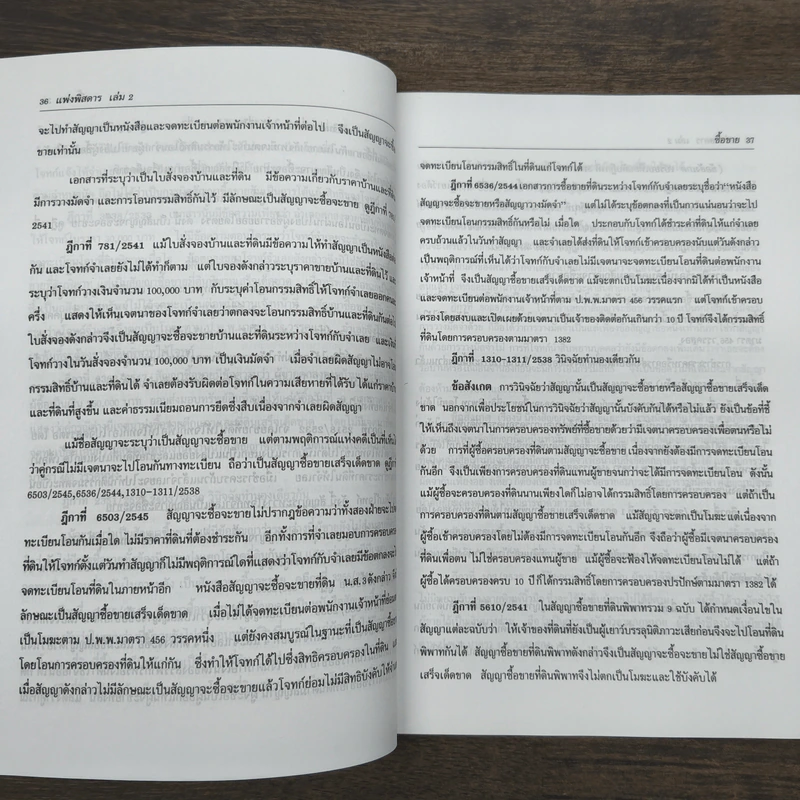 36 แพ่งพิสดาร เล่ม 2
จะไปทำสัญญาเป็นหนังสือและจดทะเบียนต่อพนักงานเจ้าหน้าที่ต่อไป จึงเป็นสัญญาจะซื้อ
ขายเท่านั้น
เอกสารที่ระบุว่าเป็นใบสั่งจองบ้านและที่ดิน มีข้อความเกี่ยวกับราคาบ้านและที่ดิน
มีการวางมัดจำ และการโอนกรรมสิทธิ์กันไว้ มีลักษณะเป็นสัญญาจะซื้อจะขาย ดูฎีกาที่
2541
ฎีกาที่ 781/2541 แม้ใบสั่งจองบ้านและที่ดินมีข้อความให้ทำสัญญาเป็นหนังสือ
กัน และโจทก์จำเลยยังไม่ได้ทำก็ตาม แต่ใบจองดังกล่าวระบุราคาขายบ้านและที่ดินไว้ และ
ระบุว่าโจทก์วางเงินจำนวน 100,000 บาท กับระบุค่าโอนกรรมสิทธิ์ให้โจทก์จำเลยออกคนละ
ครึ่ง แสดงให้เห็นเจตนาของโจทก์จำเลยว่าตกลงจะโอนกรรมสิทธิ์บ้านและที่ดินกันต่อไป
ใบสั่งจองดังกล่าวจึงเป็นสัญญาจะซื้อจะขายบ้านและที่ดินระหว่างโจทก์กับจำเลย และเงิน
โจทก์วางในวันสั่งจองจำนวน 100,000 บาท เป็นเงินมัดจำ เมื่อจำเลยผิดสัญญาไม่อาจโอน
กรรมสิทธิ์บ้านและที่ดินได้ จำเลยต้องรับผิดต่อโจทก์ในความเสียหายที่ได้รับ ได้แก่ราคาบ้าน
และที่ดินที่สูงขึ้น และค่าธรรมเนียมถอนการยึดซึ่งสืบเนื่องจากจำเลยผิดสัญญา
แม้ชื่อสัญญาจะระบุว่าเป็นสัญญาจะซื้อขาย แต่ตามพฤติการณ์แห่งคดีเป็นที่เห็น
ว่าคู่กรณีไม่มีเจตนาจะไปโอนกันทางทะเบียน ถือว่าเป็นสัญญาซื้อขายเสร็จเด็ดขาด ดูฎีกา
6503/2545,6536/2544,1310-1311/2538
ฎีกาที่ 6503/2545 สัญญาจะซื้อจะขายไม่ปรากฏข้อความว่าทั้งสองฝ่ายจะไป
ทะเบียนโอนกันเมื่อใด ไม่มีราคาที่ดินที่ต้องชำระกัน อีกทั้งการที่จำเลยมอบการครอบครอง
ที่ดินให้โจทก์ตั้งแต่วันทำสัญญาก็ไม่มีพฤติการณ์ใดที่แสดงว่าโจทก์กับจำเลยมีข้อตกลงจะ
จดทะเบียนโอนที่ดินในภายหน้าอีก หนังสือสัญญาจะซื้อจะขายที่ดิน น.ส.3 ดังกล่าว
ลักษณะเป็นสัญญาซื้อขายเสร็จเด็ดขาด เมื่อไม่ได้จดทะเบียนต่อพนักงานเจ้าหน้าที่ย่อม
เป็นโมฆะตาม ป.พ.พ.มาตรา 456 วรรคหนึ่ง แต่ยังคงสมบูรณ์ในฐานะที่เป็นสัญญาซื้อขาย
โดยโอนการครอบครองที่ดินให้แก่กัน ซึ่งทำให้โจทก์ได้ไปซึ่งสิทธิครอบครองในที่ดิน
เมื่อสัญญาดังกล่าวไม่มีลักษณะเป็นสัญญาจะซื้อจะขายแล้วโจทก์ย่อมไม่มีสิทธิบังคับให้จำเลย
ซื้อขาย 37
จดทะเบียนโอนกรรมสิทธิ์ในที่ดินแก่โจทก์ได้
ฎีกาที่ 6536/2544 เอกสารการซื้อขายที่ดินระหว่างโจทก์กับจำเลยระบุชื่อว่า“หนังสือ
สัญญาจะซื้อจะขายหรือสัญญาวางมัดจำ” แต่ไม่ได้ระบุข้อตกลงที่เป็นการแน่นอนว่าจะไป
จดทะเบียนโอนกรรมสิทธิ์กันหรือไม่ เมื่อใด ประกอบกับโจทก์ได้ชำระค่าที่ดินให้แก่จำเลย
ครบถ้วนแล้วในวันทำสัญญา และจำเลยได้ส่งที่ดินให้โจทก์เข้าครอบครองนับแต่วันดังกล่าว
เป็นพฤติการณ์ที่เห็นได้ว่าโจทก์กับจำเลยไม่มีเจตนาจะจดทะเบียนโอนที่ดินต่อพนักงาน
เจ้าหน้าที่ จึงเป็นสัญญาซื้อขายเสร็จเด็ดขาด แม้จะตกเป็นโมฆะเนื่องจากมิได้ทำเป็นหนังสือ
และจดทะเบียนต่อพนักงานเจ้าหน้าที่ตาม ป.พ.พ.มาตรา 456 วรรคแรก แต่โจทก์เข้าครอบ
ครองโดยสงบและเปิดเผยด้วยเจตนาเป็นเจ้าของติดต่อกันเกินกว่า 10 ปี โจทก์จึงได้กรรมสิทธิ์
ที่ดินโดยการครอบครองตามมาตรา 1382
ฎีกาที่ 1310-1311/2538 วินิจฉัยทำนองเดียวกัน
ข้อสังเกต การวินิจฉัยว่าสัญญานั้นเป็นสัญญาจะซื้อขายหรือสัญญาซื้อขายเสร็จเด็ด
ขาด นอกจากเพื่อประโยชน์ในการวินิจฉัยว่าสัญญานั้นบังคับกันได้หรือไม่แล้ว ยังเป็นข้อที่ชี้
ให้เห็นถึงเจตนาในการครอบครองทรัพย์ที่ซื้อขายด้วยว่ามีเจตนาครอบครองเพื่อตนหรือไม่
ด้วย การที่ผู้ซื้อครอบครองที่ดินตามสัญญาจะซื้อขาย เนื่องจากยังต้องมีการจดทะเบียนโอน
กันอีก จึงเป็นเพียงการครอบครองที่ดินแทนผู้ขายจนกว่าจะได้มีการจดทะเบียนโอน ดังนั้น
แม้ผู้ซื้อจะครอบครองที่ดินนานเพียงใดก็ไม่อาจได้กรรมสิทธิ์โดยการครอบครอง แต่ถ้าเป็น
การครอบครองที่ดินตามสัญญาซื้อขายเสร็จเด็ดขาด แม้สัญญาจะตกเป็นโมฆะ แต่เนื่องจาก
ผู้ซื้อเข้าครอบครองโดยไม่ต้องมีการจดทะเบียนโอนกันอีก จึงถือว่าผู้ซื้อมีเจตนาครอบครอง
ที่ดินเพื่อตน ไม่ใช่ครอบครองแทนผู้ขาย แม้ผู้ซื้อจะฟ้องให้จดทะเบียนโอนไม่ได้ แต่ถ้า
ผู้ซื้อได้ครอบครองครบ 10 ปีก็ได้กรรมสิทธิ์โดยการครอบครองปรปักษ์ตามมาตรา 1382 ได้
ฎีกาที่ 5610/2541 ในสัญญาซื้อขายที่ดินพิพาทรวม 9 ฉบับ ได้กำหนดเงื่อนไขใน
สัญญาแต่ละฉบับว่า ให้เจ้าของที่ดินที่ยังเป็นผู้เยาว์บรรลุนิติภาวะเสียก่อนจึงจะไปโอนที่ดิน
พิพาทกันได้ สัญญาซื้อขายที่ดินพิพาทดังกล่าวจึงเป็นสัญญาจะซื้อจะขายไม่ใช่สัญญาซื้อขาย
เสร็จเด็ดขาด สัญญาซื้อขายที่ดินพิพาทจึงไม่ตกเป็นโมฆะและใช้บังคับได้